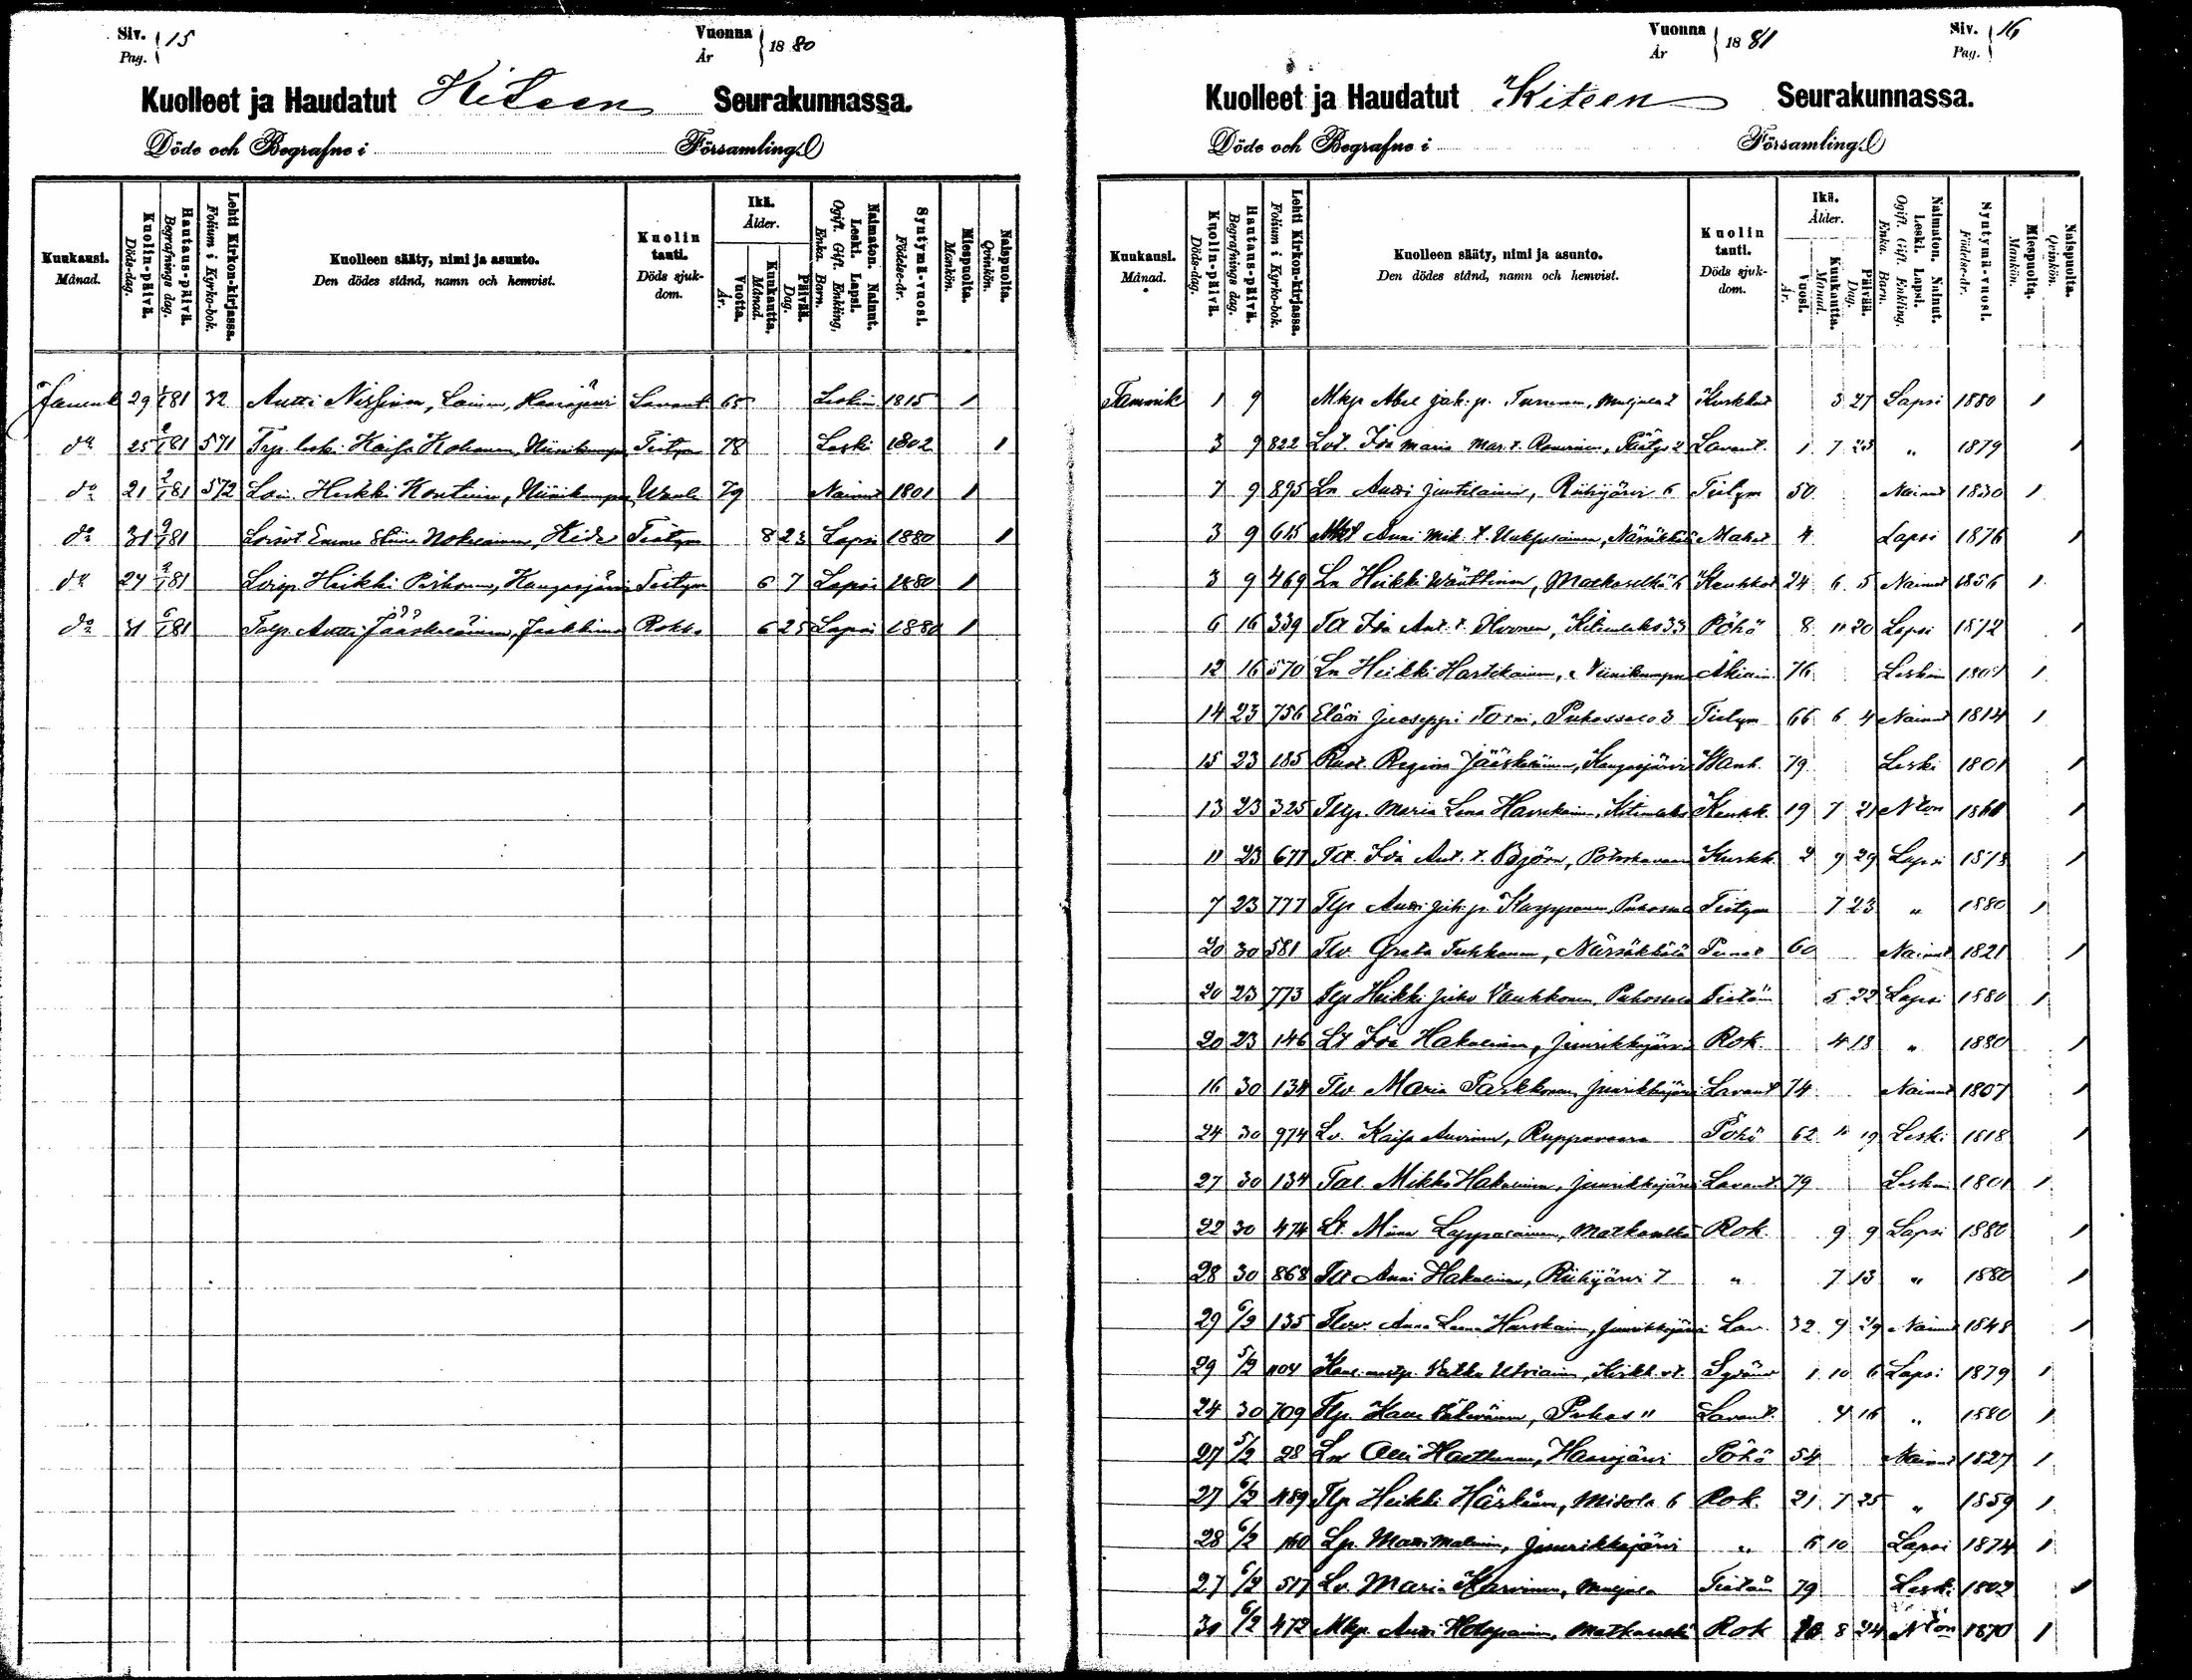 Siv. Pag. 15
Vuonna År 18 80
Kuolleet ja Haudatut Kiteen Seurakunnassa.
Döde och Begrafne i Församling.
Kuukausi. Månad.
Kuolin-päivä. Döds-dag.
Hautaus-päivä. Begrafnings dag.
Lehti Kirkon-kirjassa. Folium i Kyrko-bok.
Kuolleen sääty, nimi ja asunto.
Den dödes stånd, namn och hemvist.
Kuolin tauti. Döds sjuk-dom.
Ikä. Ålder.
Vuotta. År.
Kuukautta. Månad.
Päivää. Dag.
Naimaton. Nainut. Leski. Lapsi. Ogift. Gift. Enkling, Enka. Barn.
Syntymä-vuosi. Födelse-år.
Miespuolta. Mankön.
Naispuolta. Qvinkön.
29 81 32 Antti Nissinen, Loinen, Haarajärvi Lavant 65 Leskin 1815 1
do 25 81 571 Kaisa Kohonen, Niinikumpu Tistym 78 Leski 1802 1
do 21 2/1 81 572 Loi. Heikki Kontinen, Niinikumpu, Wanh 79 Nainut 1801 1
do 31 9/1 81 Emma Stiina Nokelainen, Kide Tistym 8 23 Lapsi 1880 1
do 24 2/1 81 Loisp. Heikki Pirhonen, Kangasjärvi Tistym 6 7 Lapsi 1880 1
do 31 6/1 81 Talp. Antti Jääskeläinen, Jaakkima Rokko 6 25 Lapsi 1880 1
Vuonna År 18 81
Siv. Pag. 16
Kuolleet ja Haudatut Kiteen Seurakunnassa.
Döde och Begrafne i Församling.
Kuukausi. Månad.
Kuolin-päivä. Döds-dag.
Hautaus-päivä. Begrafnings dag.
Lehti Kirkon-kirjassa. Folium i Kyrko-bok.
Kuolleen sääty, nimi ja asunto.
Den dödes stånd, namn och hemvist.
Kuolin tauti. Döds sjuk-dom.
Ikä. Ålder.
Vuosi. År.
Kuukautta. Månad.
Päivää. Dag.
Naimaton. Nainut. Leski. Lapsi. Ogift. Gift. Enkling. Enka. Barn.
Syntymä-vuosi. Födelse-år.
Miespuolta. Mankön.
Naispuolta. Qvinkön.
Tammik 1 9 Mkp Abel Juh. p. Turunen, Muljula 2 Kurkkut 3 27 Lapsi 1880 1
3 9 822 Lot. Ida Maria Mar. t. Päätye 2 Lavant. 1 7 23 " 1879 1
7 9 895 Ln Antti Juutilainen, Riihijärvi 6 Tistym 50 Nainut 1830 1
3 9 615 Anni Mik. t. Närsäkkälä Mahat 4 Lapsi 1876 1
3 9 469 Ln Heikki Wänttinen, Matkaselkä 6 Keuhkot 24 6 5 Nainut 1856 1
6 16 339 Tt Ida Ant. t. Hvonen, Kitenlaks 33 Pöhö 8 11 20 Lapsi 1872 1
12 16 570 Ln Heikki Hartikainen, Niinikumpu Äkiain. 76 Leskin 1 
14 23 756 Eläri Juoseppi Tossi, Puhossalo 3 Tistym 66 6 4 Nainut 1814 1
15 23 185 Ruot. Regina Jääskeläinen, Kangasjärvi Wanh. 79 Leski 1801 1
13 23 325 Maria Lena Havukainen, Kitenlaks Keuhk. 19 7 21 N:ton 1861 1
11 23 677 Tt. Ida Ant. t. Björn, Potoskavaara Kurkk. 2 9 29 Lapsi 1878 1
7 23 777 Tlp Antti Juh. p. Karppanen, Puhossalo Tistym 7 23 " 1880 1
20 30 581 Tlv. Greta Tuhkanen, Närsäkkälä Punat 60 Nainut 1821 1
20 23 773 Tlp Heikki Juho Vauhkonen, Puhossalo Tistäm 5 22 Lapsi 1880 1
20 23 146 Lt Ida Hakulinen, Juurikkajärvi Rok. 4 13 " 1880 1
16 30 134 Tlv Maria Parkkonen, Juurikkajärvi Lavant 74 Nainut 1807 1
24 30 974 Lv. Kaisa Auvinen, Ruppovaara Pöhö 62 11 19 Leski 1818 1
27 30 134 Tal. Mikko Hakulinen, Juurikkajärvi Lavant. 79 Leskin 1801 1
22 30 474 Lt. Miina Lappalainen, Matkaselkä Rok. 9 9 Lapsi 1880 1
28 30 868 Tt Anni Hakulinen, Riihijärvi 7 " 7 13 " 1880 1
29 6/2 135 Anna Leena Hurskainen, Juurikkajärvi Lav. 32 9 29 Nainut 1848 1
29 5/2 1104 Utriainen, Kirkk. Sydänv 1 10 6 Lapsi 1879 1
24 30 709 Tlp. Puhos 11 Lavant. 4 16 " 1880 1
27 5/2 28 Ln Olli Haarajärvi Pöhö 54 Nainut 1827 1
27 6/2 489 Tlp Heikki Härkin, Misola 6 Rok. 21 7 25 " 1859 1
28 6/2 160 Lp. Matti Malinen, Juurikkajärvi " 6 10 Lapsi 1874 1
27 6/2 517 Lv. Maria Karvinen, Muljula Tistäm 79 Leski 1802 1
30 6/2 472 Mkp Antti Holopainen, Matkaselkä Rok 10 8 24 N:ton 1870 1